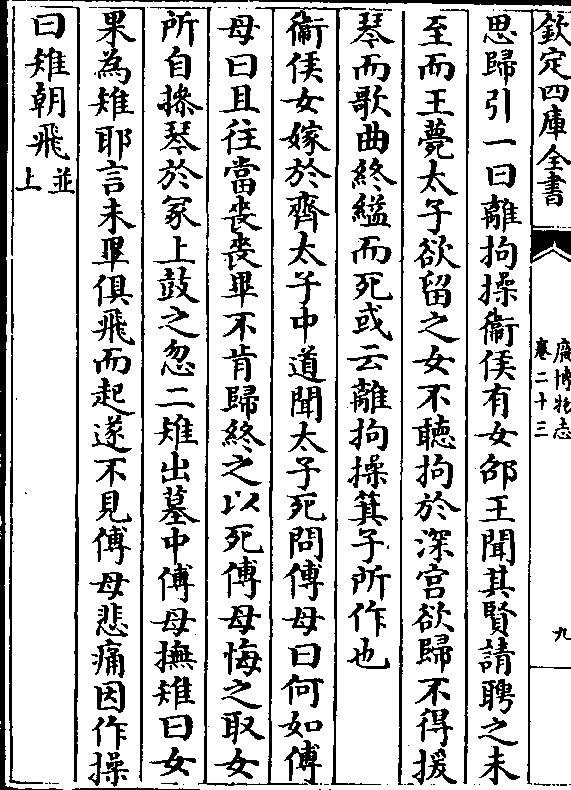 欽定四庫全書
廣博物志
卷二十三
九
思歸引一曰離拘操衞侯有女邵王聞其賢請聘之未
至而王薨太子欲留之女不聽拘於深宮欲歸不得援
琴而歌曲終縊而死或云離拘操箕子所作也
衞侯女嫁於齊太子中道聞太子死問傅母曰何如傅
母曰且往當喪喪畢不肯歸終之以死傅母悔之取女
所自操琴於冢上鼓之忽二雉出墓中傅母撫雉曰女
果為雉耶言未畢俱飛而起遂不見傅母悲痛因作操
曰雉朝飛並上